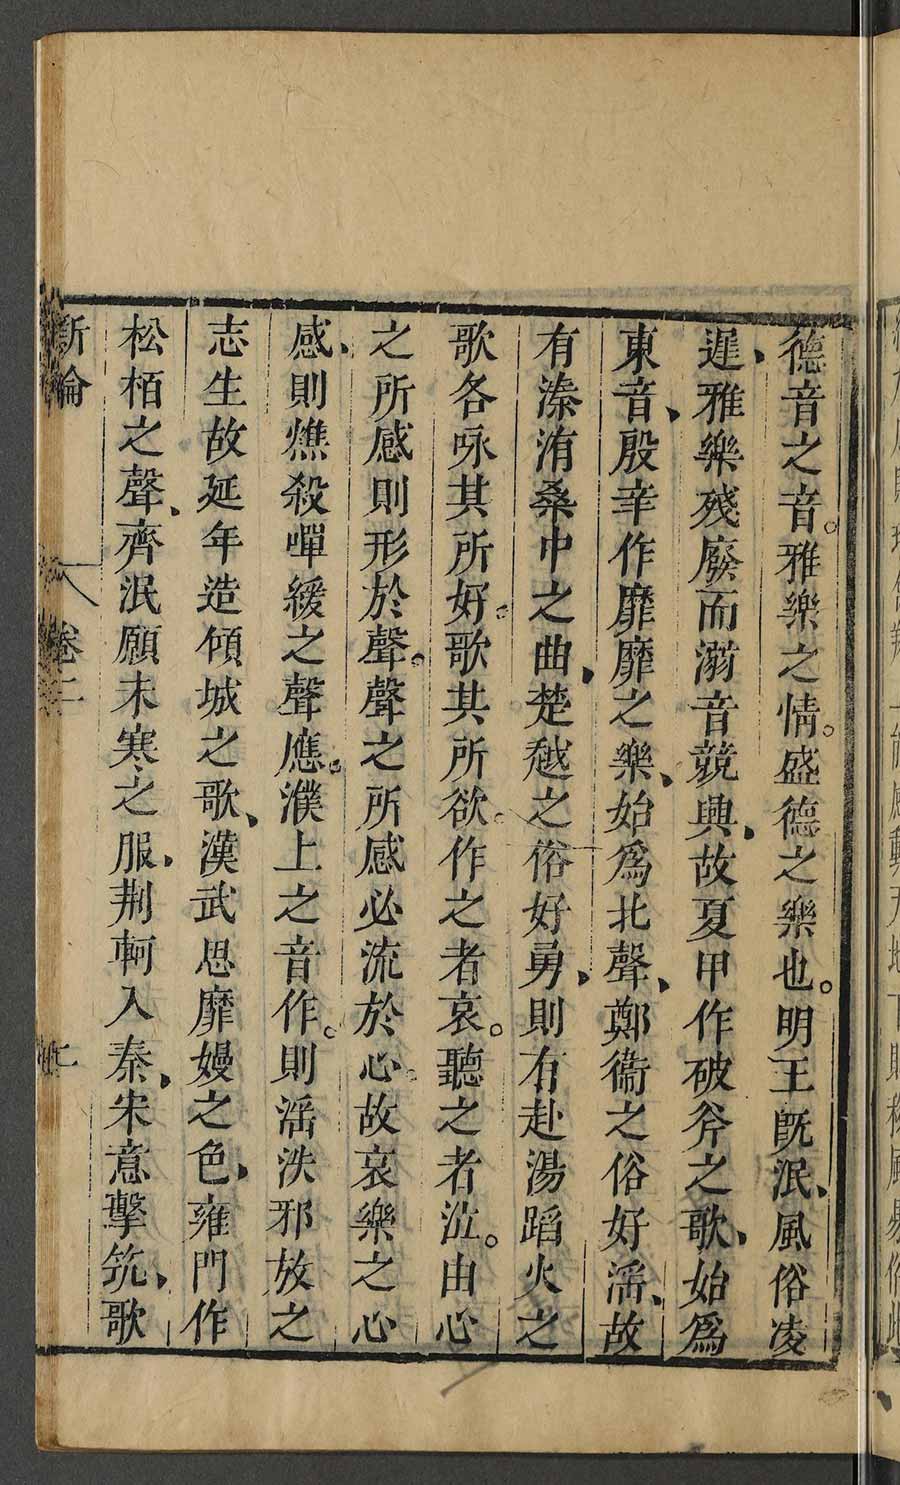 德音之音。雅樂之情。盛德之樂也。明王既泯、風俗凌
遲、雅樂殘廢而溺音競興、故夏甲作破斧之歌、始為
東音、殷辛作靡靡之樂、始為北聲、鄭衞之俗好淫、故
有溱洧桑中之曲、楚越之俗好勇、則有赴湯蹈火之
歌各咏其所好。歌其所欲。作之者哀。聽之者泣。由心
之所感則形於聲。聲之所感必流於心。故哀樂之心
感、則燋殺嘽緩之聲應。濮上之音作。則淫泆邪放之
志生故延年造傾城之歌、漢武思靡嫚之色、雍門作
松栢之聲、齊泯願未寒之服、荆軻入秦、宋意擊筑、歌
新論
卷二
二